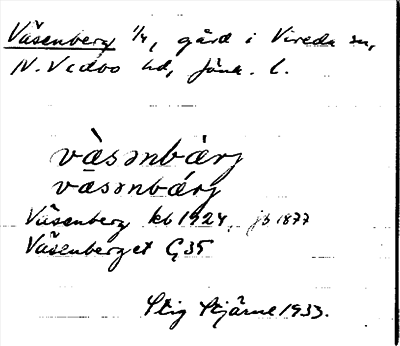 Väsenberg 1/4, gård i Vireda sn,
N. Vedbo hd, Jönk. l.
vàsənbærj
vàsənbǽrj
Väsenberg kb 1924, jb 1877
Väsenberget G35
Stig Stjärne 1933.